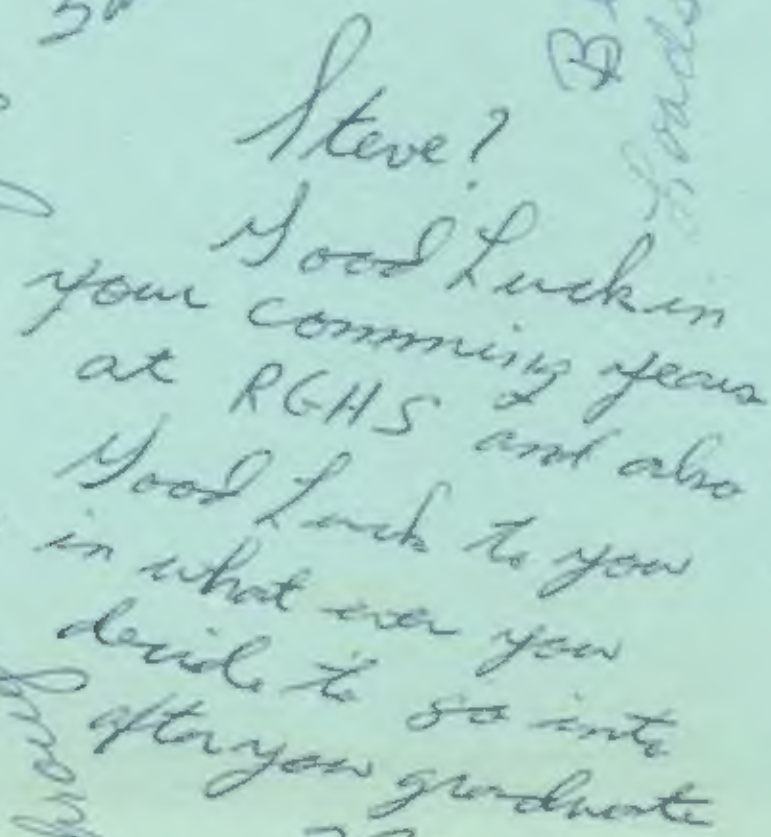 Steve?
Good Luck in
your comming years
at RGHS and also
Good Luck to you
in what ever you
decide to go into
after you graduate